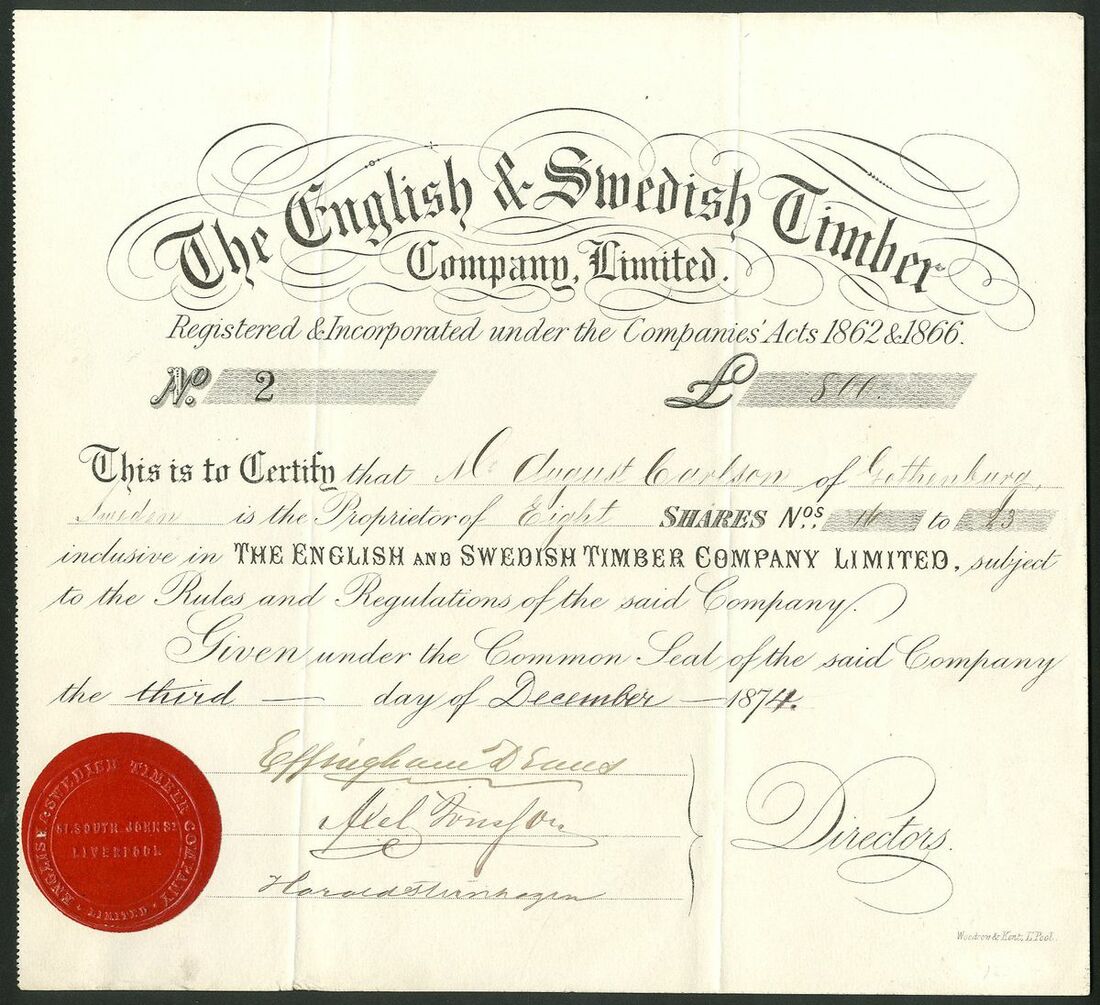 The English & Swedish Timber
Company, Limited.
Registered & Incorporated under the Companies' Acts 1862 & 1866.
No. 2 £ 800.
This is to Certify that Mr August Carlson of Gothenburg,
Sweden is the Proprietor of Eight SHARES Nos. 16 to 23
inclusive in THE ENGLISH AND SWEDISH TIMBER COMPANY LIMITED, subject
to the Rules and Regulations of the said Company.
Given under the Common Seal of the said Company
the third — day of December — 1874.
Effingham D Evans
Axel
Harald
Directors.
ENGLISH & SWEDISH TIMBER COMPANY
SOUTH JOHN ST
LIVERPOOL
LIMITED
Woodrow & Kent, L'Pool.